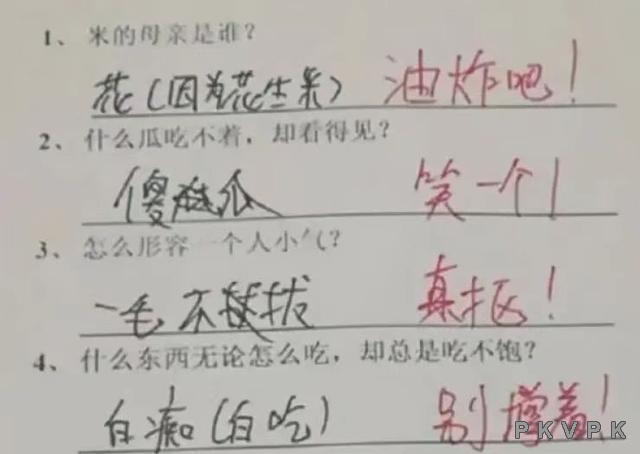 1、米的母亲是谁？
花（因为花生米） 油炸吧！
2、什么瓜吃不着，却看得见？
傻瓜 笑一个！
3、怎么形容一个人小气？
一毛不拔 真抠！
4、什么东西无论怎么吃，却总是吃不饱？
白痴（白吃） 别撑着！
PKVPK